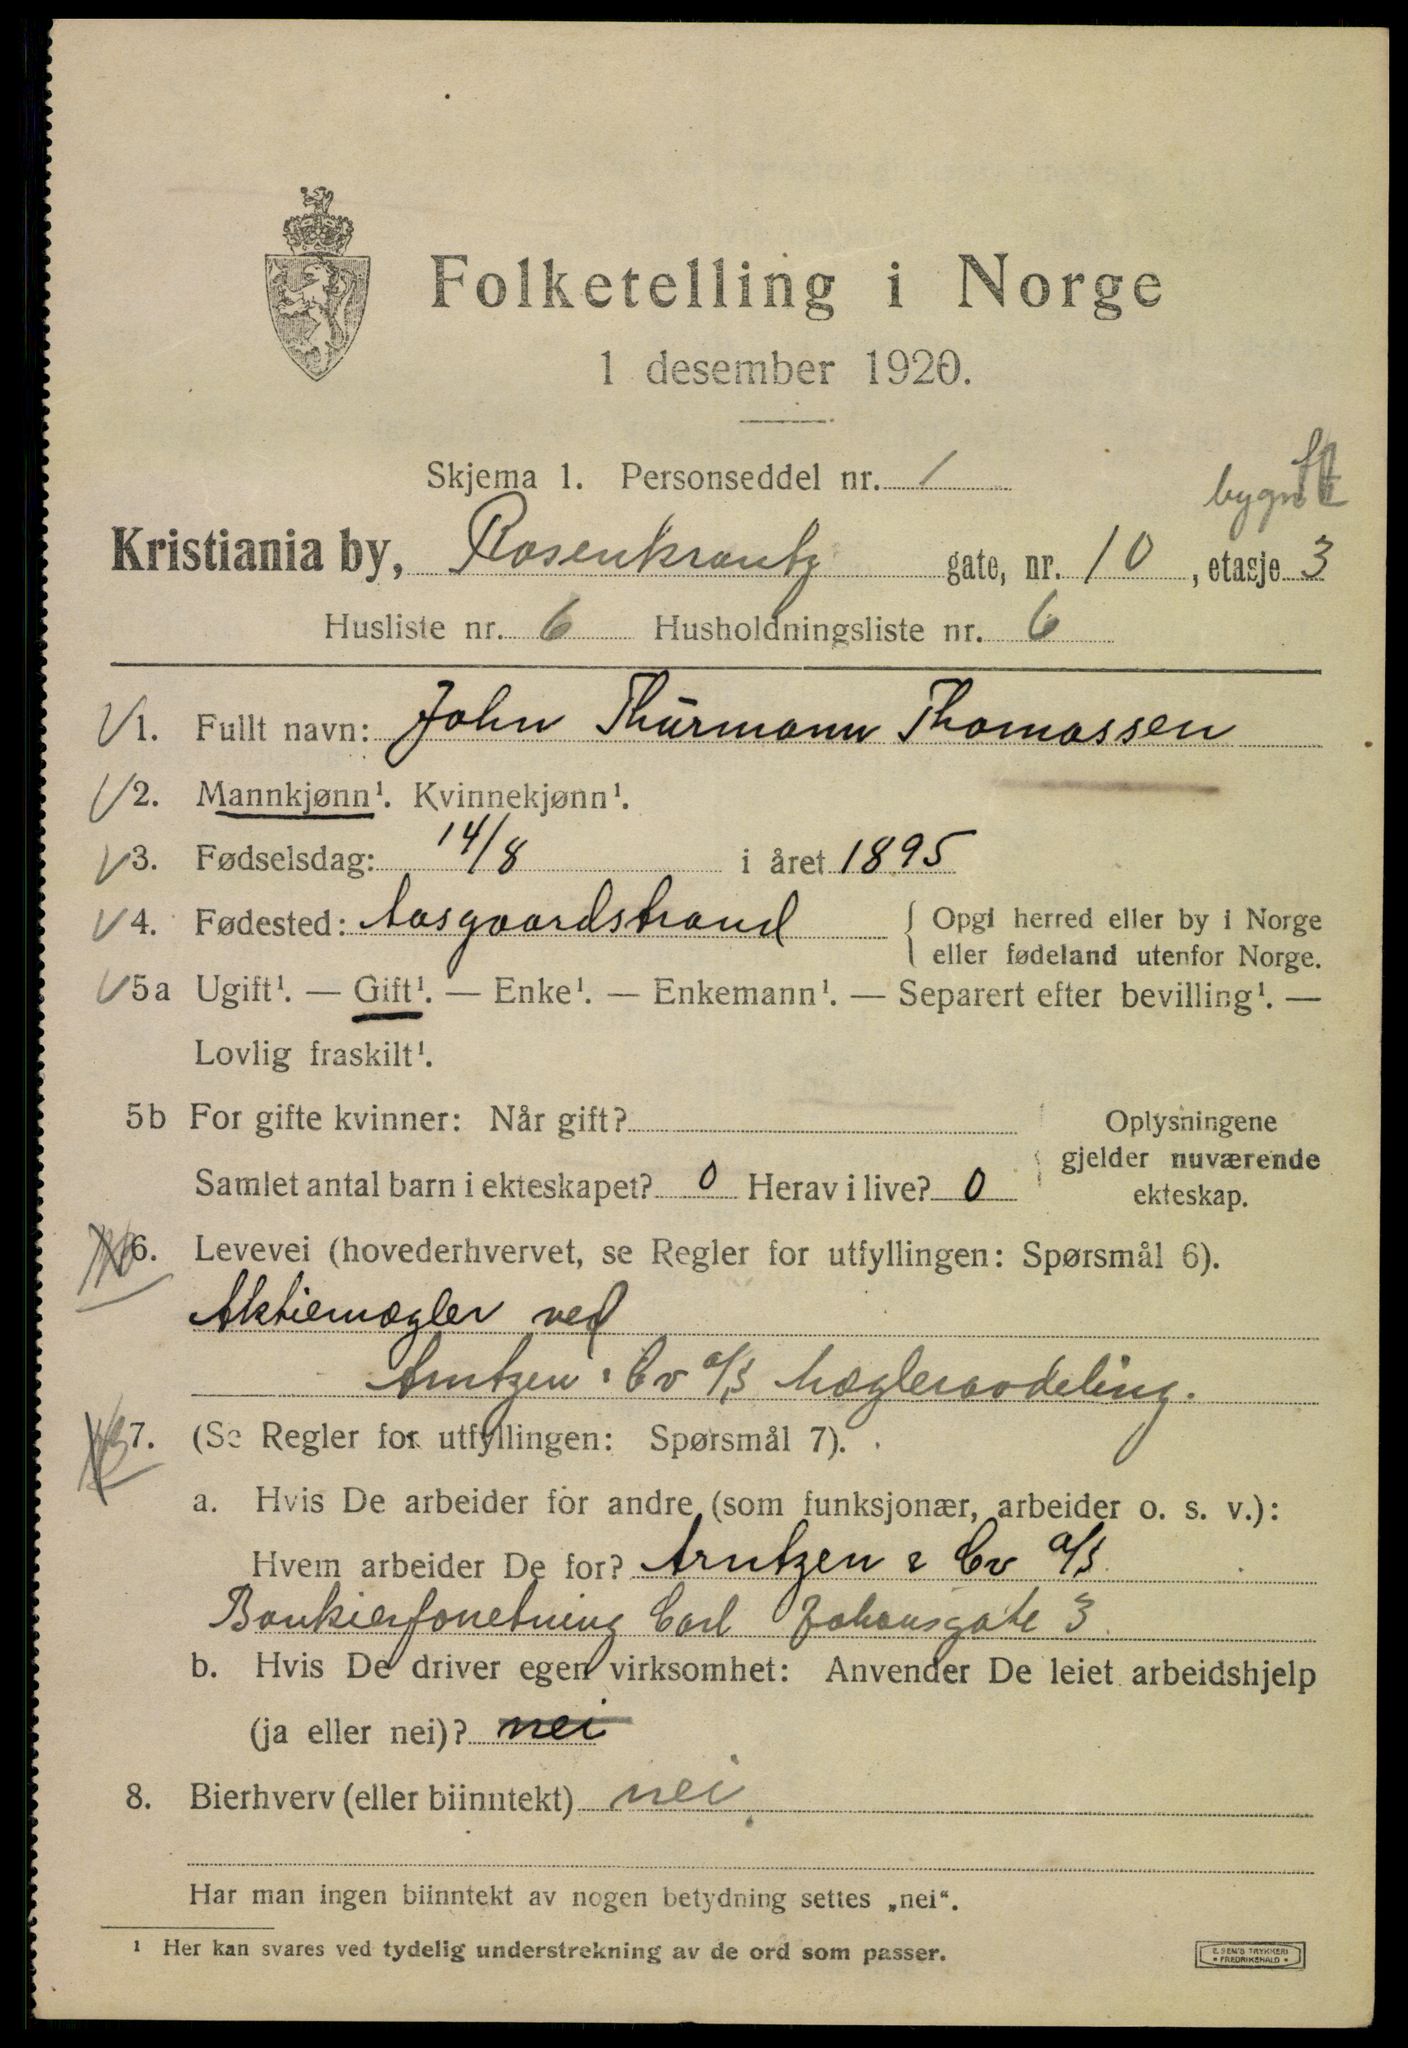 Folketelling i Norge
1 desember 1920.
Skjema 1. Personseddel nr. 1
bygn.
Kristiania by, Rosenkrantz gate, nr. 10, etasje 3
Husliste nr. 6 Husholdningsliste nr. 6
1. Fullt navn: John Thurmann Thomassen
2. Mannkjønn¹. Kvinnekjønn¹.
3. Fødselsdag: 14/8 i året 1895
4. Fødested: Aasgaardstrand { Opgi herred eller by i Norge
eller fødeland utenfor Norge.
5a Ugift¹. — Gift¹. — Enke¹. — Enkemann¹. — Separert efter bevilling¹. —
Lovlig fraskilt¹.
5b For gifte kvinner: Når gift?
Samlet antal barn i ekteskapet? 0 Herav i live? 0
Oplysningene
gjelder nuværende
ekteskap.
6. Levevei (hovederhvervet, se Regler for utfyllingen: Spørsmål 6).
Aktiemægler ved
Arntzen & Co a/s Mægleravdeling.
7. (Se Regler for utfyllingen: Spørsmål 7).
a. Hvis De arbeider for andre (som funksjonær, arbeider o. s. v.):
Hvem arbeider De for? Arntzen & Co a/s
Bankierforretning Carl Johansgate 3
b. Hvis De driver egen virksomhet: Anvender De leiet arbeidshjelp
(ja eller nei)? nei
8. Bierhverv (eller biinntekt) nei.
Har man ingen biinntekt av nogen betydning settes „nei“.
¹ Her kan svares ved tydelig understrekning av de ord som passer.
E. SEM'S TRYKKERI
• FREDRIKSHALD •